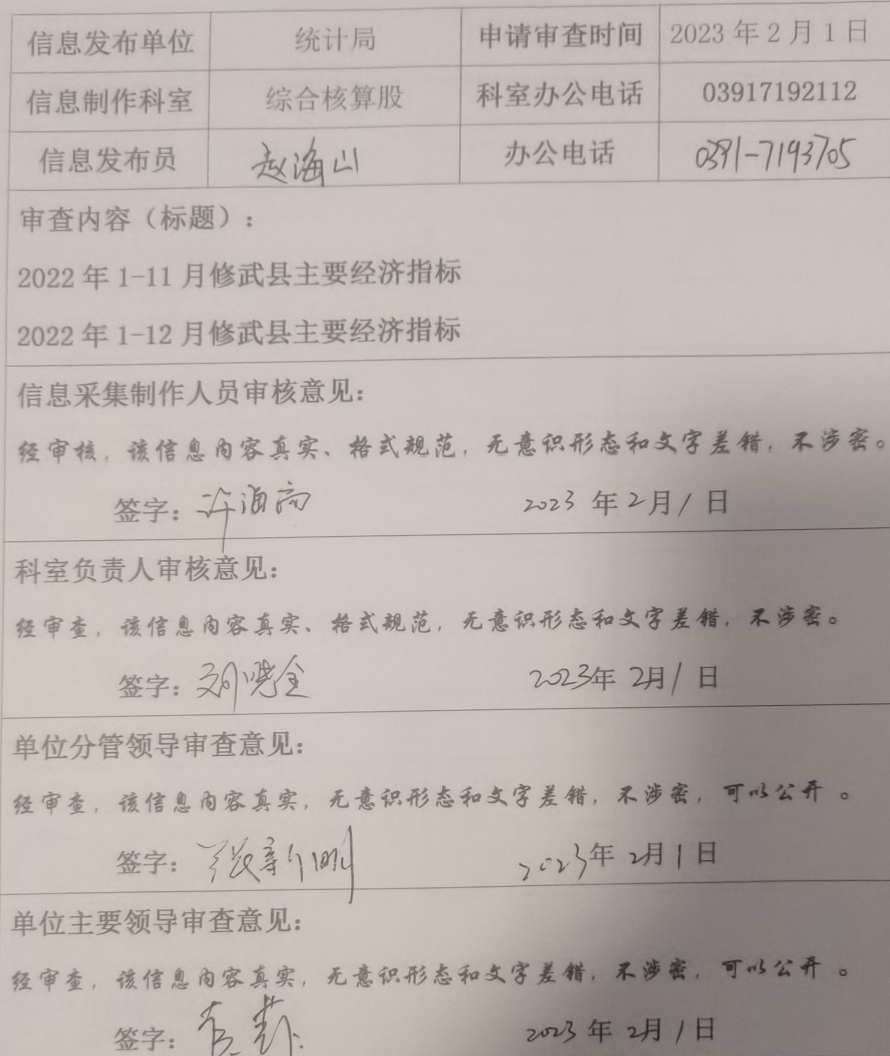 信息发布单位 统计局 申请审查时间 2023年2月1日
信息制作科室 综合核算股 科室办公电话 03917192112
信息发布员 赵海山 办公电话 0391-7193705
审查内容（标题）：
2022年1-11月修武县主要经济指标
2022年1-12月修武县主要经济指标
信息采集制作人员审核意见：
经审核，该信息内容真实、格式规范，无意识形态和文字差错，不涉密。
签字：许海 2023年2月1日
科室负责人审核意见：
经审查，该信息内容真实、格式规范，无意识形态和文字差错，不涉密。
签字：刘晓全 2023年2月1日
单位分管领导审查意见：
经审查，该信息内容真实，无意识形态和文字差错，不涉密，可以公开。
签字：张新 2023年2月1日
单位主要领导审查意见：
经审查，该信息内容真实，无意识形态和文字差错，不涉密，可以公开。
签字： 2023年2月1日